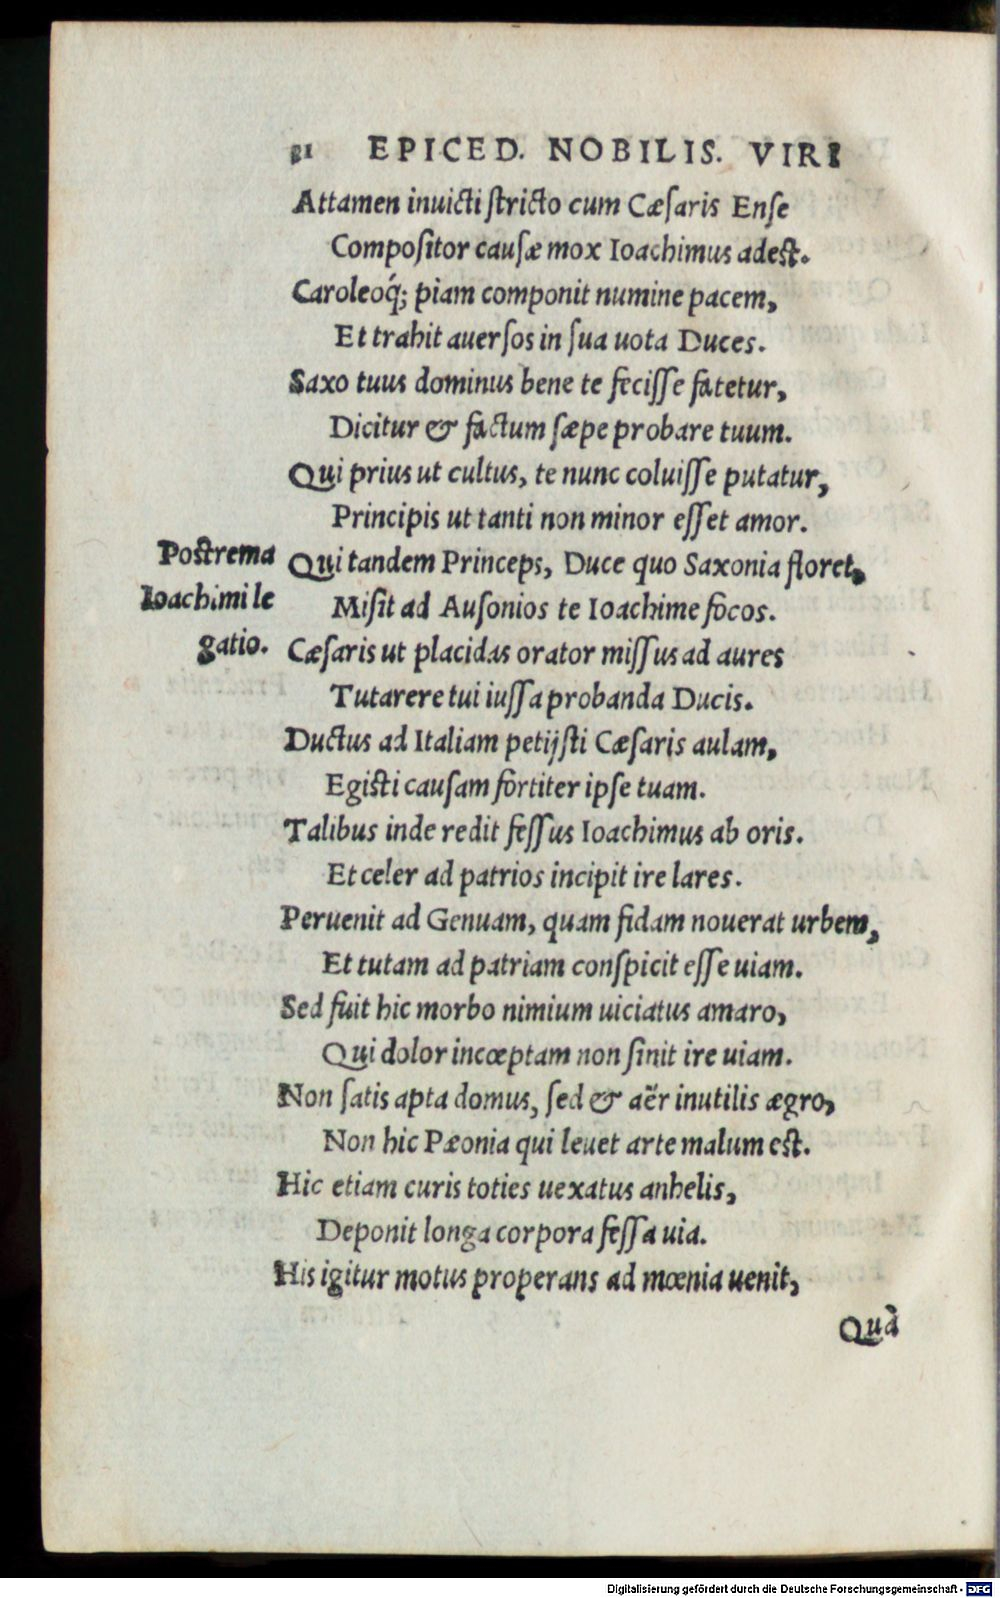 81 EPICED. NOBILIS. VIRI
Attamen inuicti ſtricto cum Cæſaris Enſe
Compoſitor cauſæ mox Ioachimus adeſt.
Caroleoq́; piam componit numine pacem,
Et trahit auerſos in ſua uota Duces.
Saxo tuus dominus bene te feciſſe fatetur,
Dicitur & factum ſæpe probare tuum.
Qui prius ut cultus, te nunc coluiſſe putatur,
Principis ut tanti non minor eſſet amor.
Poſtrema Ioachimi le gatio.
Qui tandem Princeps, Duce quo Saxonia floret,
Miſit ad Auſonios te Ioachime focos.
Cæſaris ut placidas orator miſſus ad aures
Tutarere tui iuſſa probanda Ducis.
Ductus ad Italiam petijſti Cæſaris aulam,
Egiſti cauſam fortiter ipſe tuam.
Talibus inde redit feſſus Ioachimus ab oris.
Et celer ad patrios incipit ire lares.
Peruenit ad Genuam, quam fidam nouerat urbem,
Et tutam ad patriam conſpicit eſſe uiam.
Sed fuit hic morbo nimium uiciatus amaro,
Qui dolor incœptam non ſinit ire uiam.
Non ſatis apta domus, ſed & aër inutilis ægro,
Non hic Pæonia qui leuet arte malum eſt.
Hic etiam curis toties uexatus anhelis,
Deponit longa corpora feſſa uia.
His igitur motus properans ad mœnia uenit,
Quà
Digitalisierung gefördert durch die Deutsche Forschungsgemeinschaft - DFG